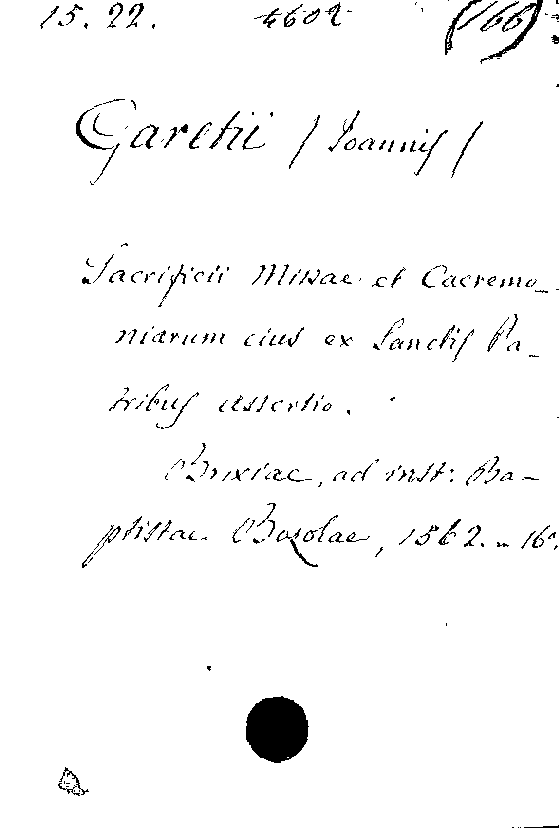 15. 22. 4602 (166)
Garetii / Ioannis /
Sacrificii Missae et Caeremo-
niarum eius ex Sanctis Pa-
tribus assertio.
Brixiae, ad inst: Ba-
ptistae Bozolae, 1562. - 16°.